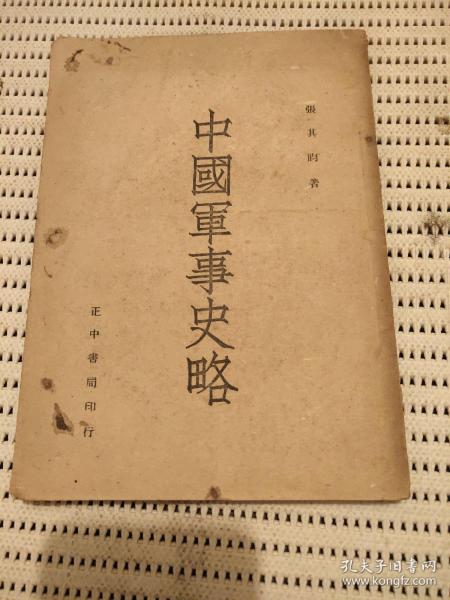 張其昀著
中國軍事史略
正中書局印行
孔夫子旧书网
www.kongfz.com